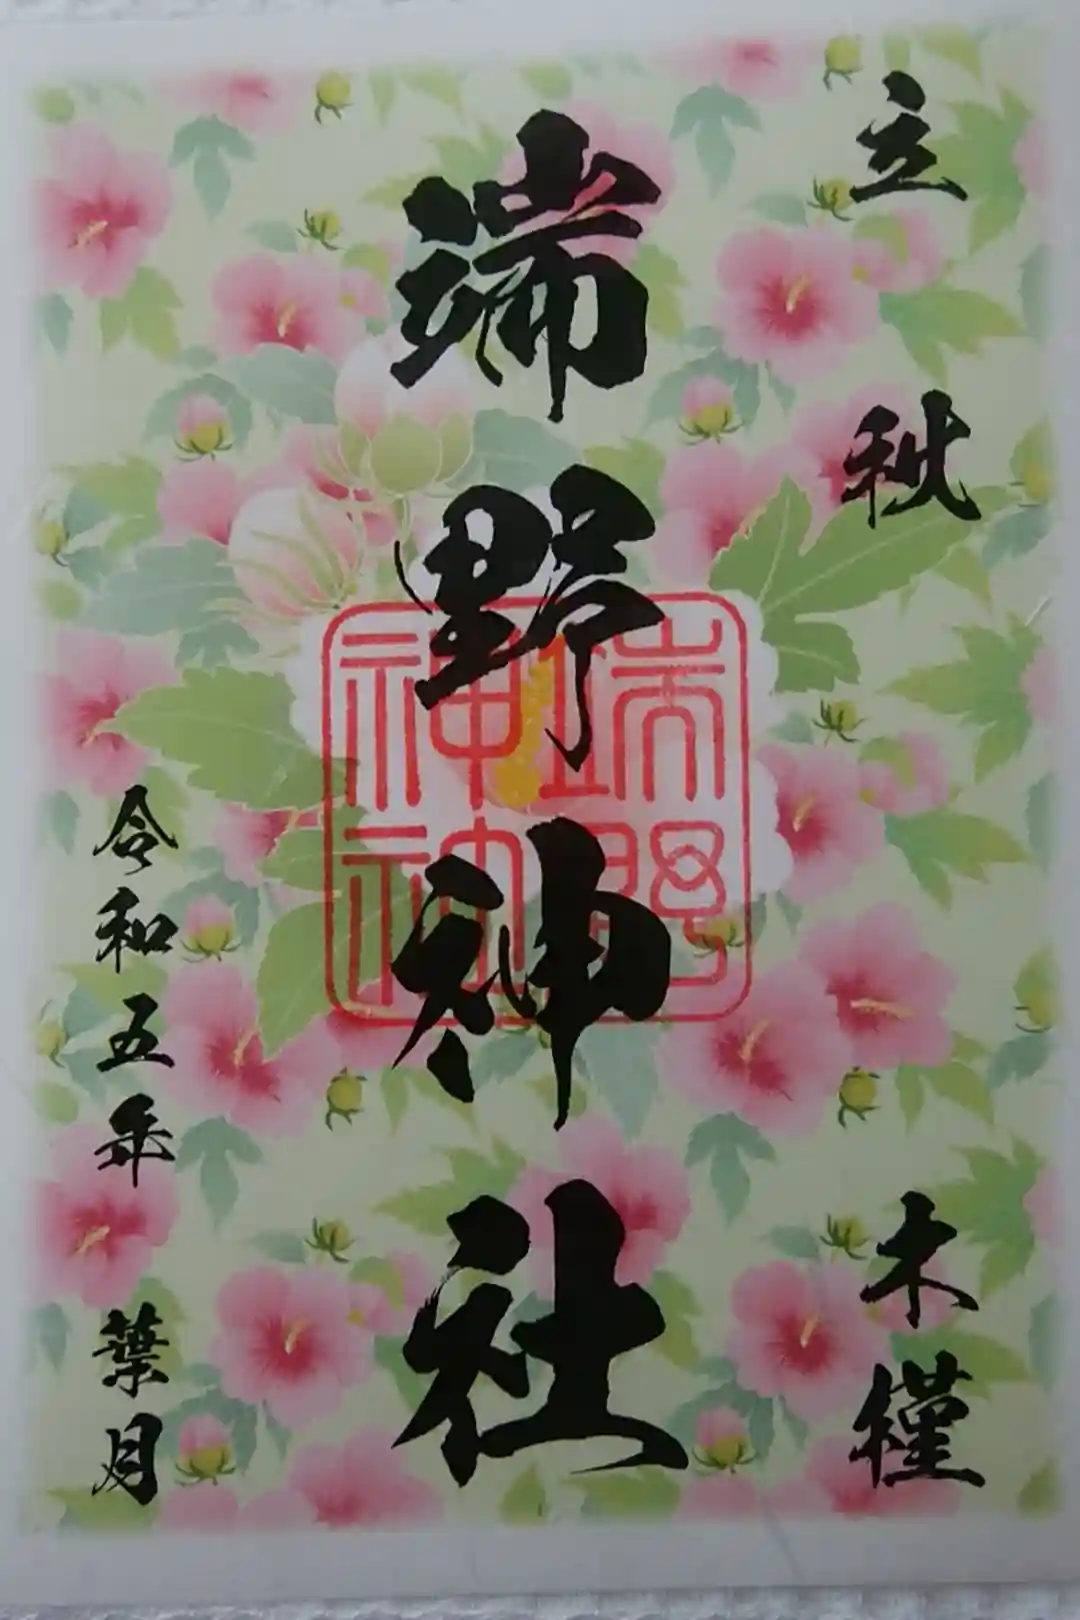 立秋 木槿
端野神社
端野神社
令和五年 葉月